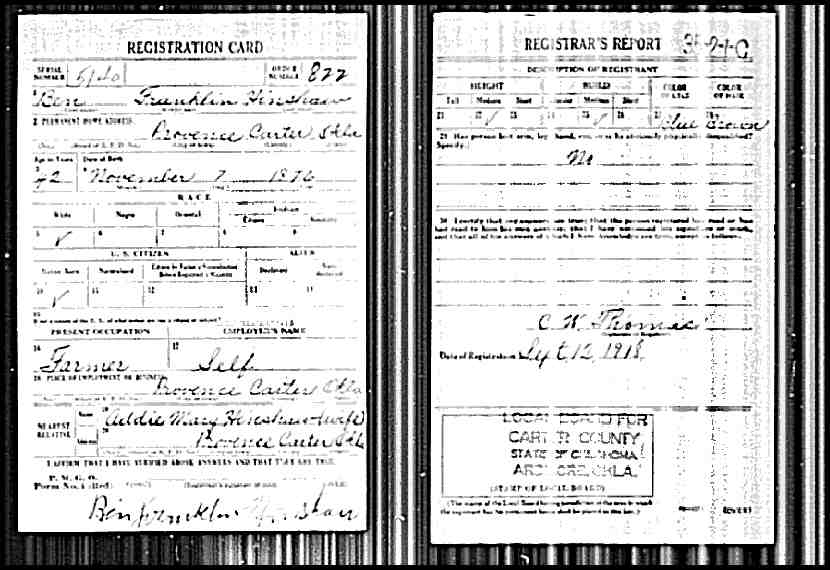 REGISTRATION CARD
SERIAL NUMBER
ORDER NUMBER 822
Ben Franklin Hinshaw
2 PERMANENT HOME ADDRESS
Provence Carter Okla
Age in Years Date of Birth
42 November 7 1876
RACE
White Negro Oriental Indian
Citizen
5 ✓ 6 7 8 9
U. S. CITIZEN ALIEN
Native Born Naturalized Citizen by Father's Naturalization Before Registrant's Majority Declarant Non-declarant
10 ✓ 11 12 13
15
PRESENT OCCUPATION EMPLOYER'S NAME
16 Farmer 17 Self
18 PLACE OF EMPLOYMENT OR BUSINESS
Provence Carter Okla
NEAREST RELATIVE Name 19 Addie Mary Hinshaw (wife)
Address 20 Provence Carter Okla
I AFFIRM THAT I HAVE VERIFIED ABOVE ANSWERS AND THAT THEY ARE TRUE
P. M. G. O.
Form No. 1 (Red)
Ben Franklin Hinshaw
REGISTRAR'S REPORT
DESCRIPTION OF REGISTRANT
HEIGHT BUILD COLOR OF EYES COLOR OF HAIR
Tall Medium Short Slender Medium Stout
21 22 ✓ 23 24 25 ✓ 26 27 Blue Brown
29 Has person lost arm, leg, hand, eye, or is he obviously physically disqualified?
Specify.
No
30 I certify that my answers are true; that the person registered has read or has
had read to him his own answers; that I have witnessed his signature or mark,
and that all of his answers of which I have knowledge are true, except as follows:
C. W. Thomas
Date of Registration Sept. 12, 1918
LOCAL BOARD FOR
CARTER COUNTY
STATE OF OKLAHOMA
ARDMORE, OKLA.
(STAMP OF LOCAL BOARD)
(The stamp of the Local Board having jurisdiction of the area in which
the registrant has his permanent home shall be placed in this box.)
(OVER)